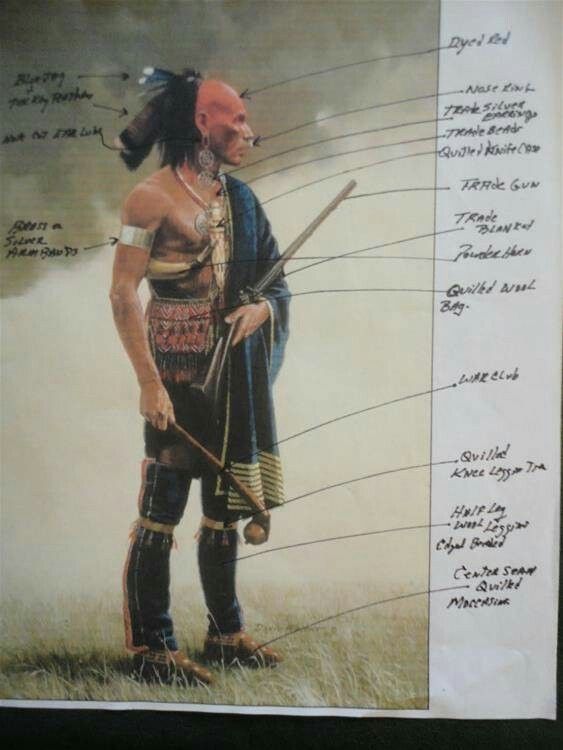 Blue Jay
Turkey Feathers
Not Cut Ear Lobe
Brass or
Silver
Arm Bands
Dyed Red
Nose Ring
Trade Silver
Earrings
Trade Beads
Quilled Knife Case
Trade Gun
Trade
Blanket
Powder Horn
Quilled Wool
Bag.
War Club
Quilled
Knee Leggin
Half Leg
Wool Leggins
Edged Beaded
Center Seam
Quilled
Moccasins